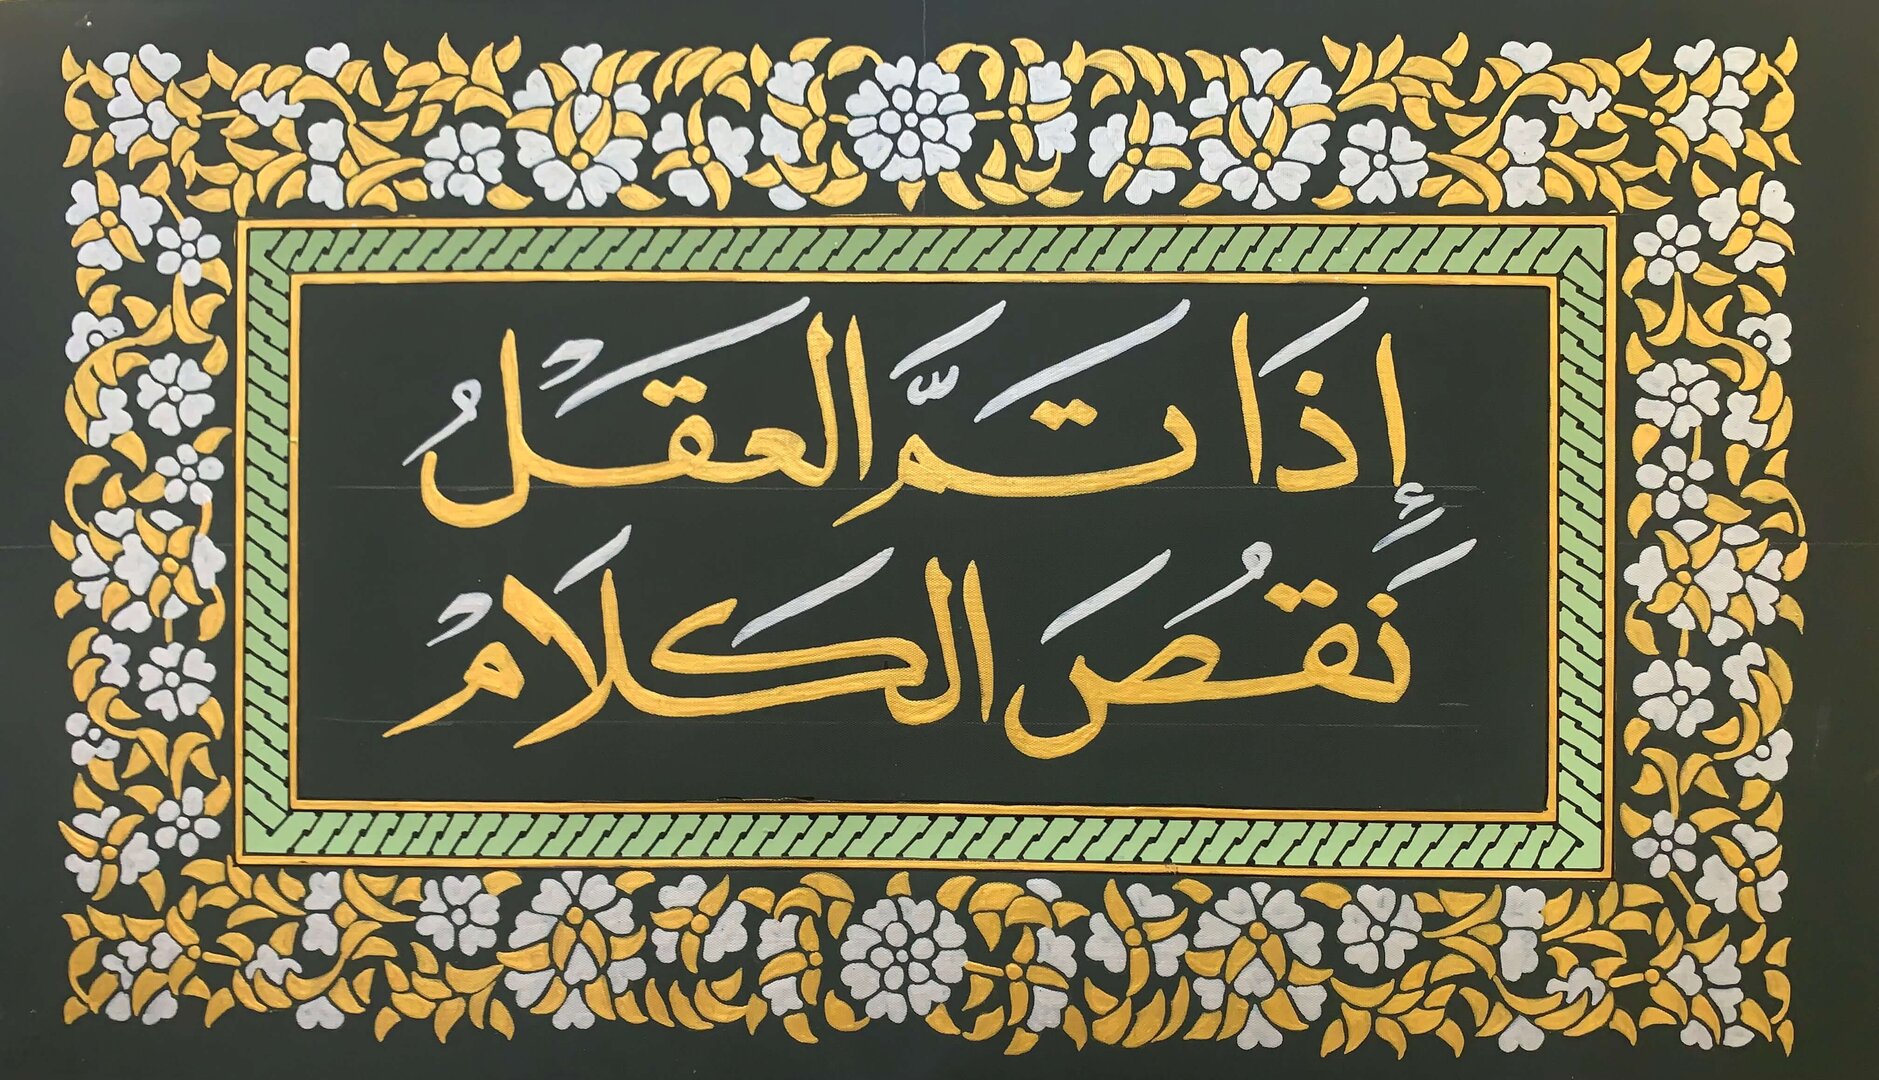 إِذَا تَمَّ الْعَقْلُ
نَقُصَ الْكَلَامْ